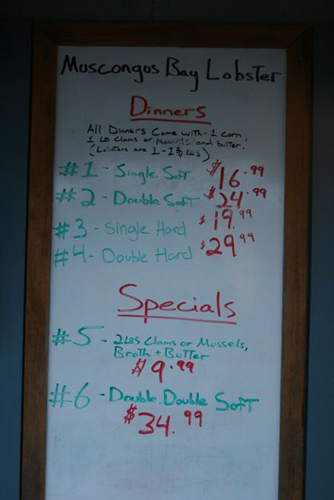 Muscongus Bay Lobster
Dinners
All Dinners Come with - 1 corn,
1 LB Clams or Mussels, and butter.
(Lobsters are 1 - 1 1/4 LBS)
#1 - Single Soft $16.99
#2 - Double Soft $24.99
#3 - Single Hard $19.99
#4 - Double Hard $29.99
Specials
#5 - 2 LBS Clams or Mussels,
Broth + Butter
$9.99
#6 - Double, Double Soft
$34.99